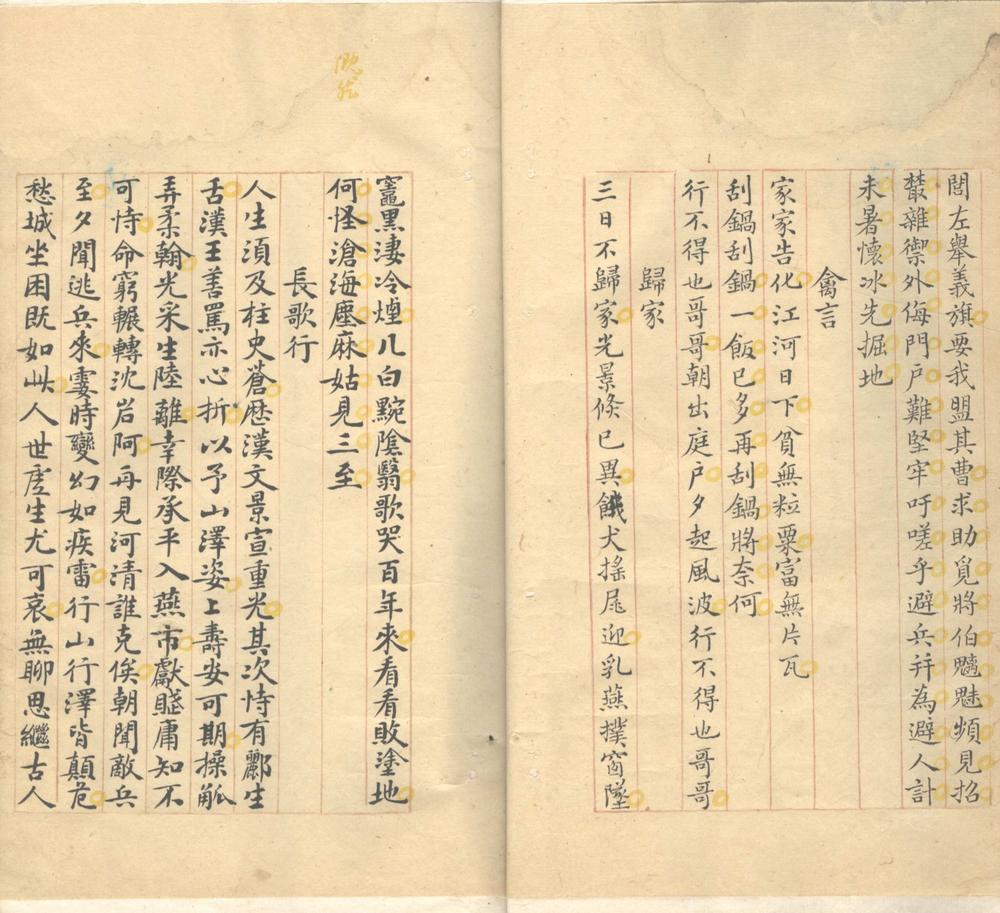 閭左舉義旗要我盟其曹求助覓將伯魑魅頻見招
叢雜禦外侮門戶難堅牢吁嗟乎避兵幷為避人計
未暑懷冰先掘地
禽言
家家告化江河日下貧無粒粟富無片瓦
刮鍋刮鍋一飯已多再刮鍋將奈何
行不得也哥哥朝出庭戶夕起風波行不得也哥哥
歸家
三日不歸家光景倏已異餓犬搖尾迎乳燕撲窗墜
竈黑淒冷煙几白黦陰翳歌哭百年來看看敗塗地
何怪滄海塵麻姑見三至
長歌行
人生須及柱史蒼歷漢文景宣重光其次恃有酈生
舌漢王善罵亦心折以予山澤姿上壽安可期操觚
弄柔翰光采生陸離幸際承平入燕市獻賦庸知不
可恃命窮輾轉沈岩阿再見河清誰克俟朝聞敵兵
至夕聞逃兵來霎時變幻如疾雷行山行澤皆顛危
愁城坐困既如此人世虛生尤可哀無聊思繼古人
慨然